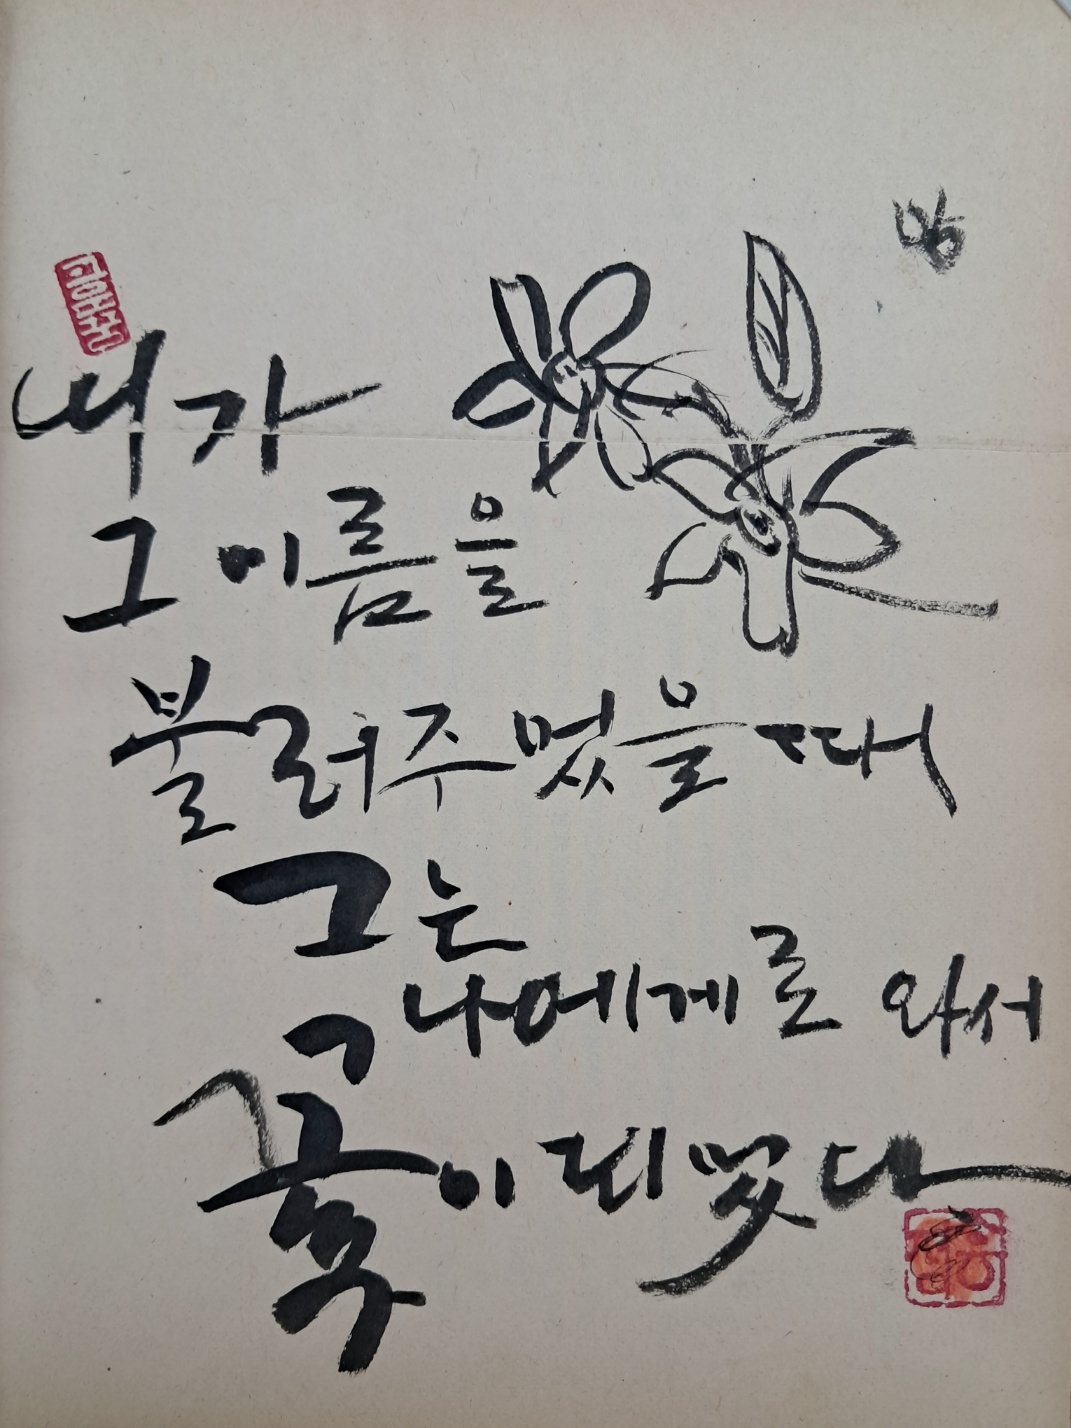 내가
그 이름을
불러주었을때
그는
나에게로 와서
꽃이 되었다